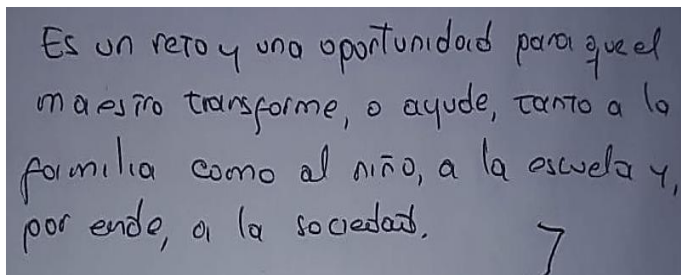 Es un reto y una oportunidad para que el
maestro transforme, o ayude, tanto a la
familia como al niño, a la escuela y,
por ende, a la sociedad.
7